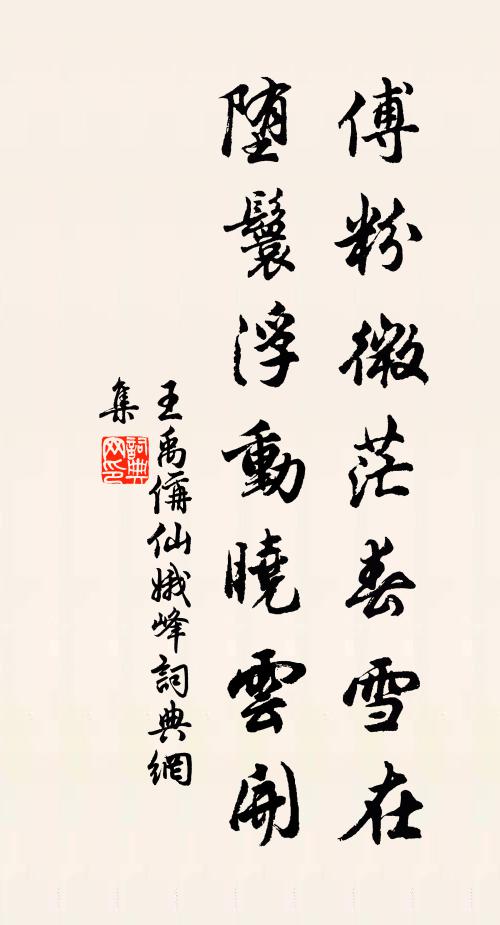 傅粉微茫春雪在
堕鬟浮動曉雲開
王禹偁仙娥峰詞典網
集
詞典
网印